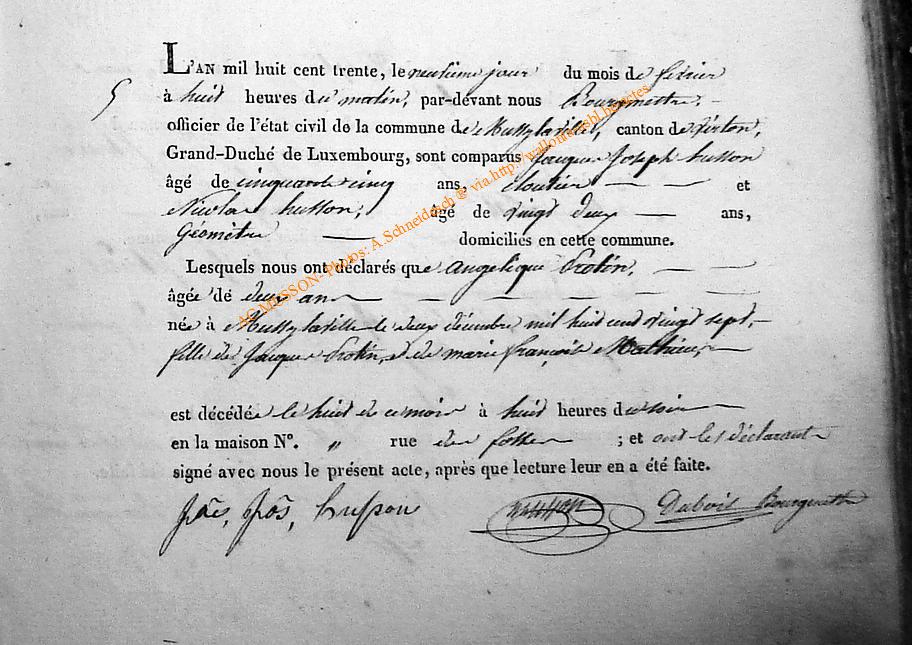 5
L'AN mil huit cent trente, le neuvième jour du mois de février
à huit heures du matin, par-devant nous Bourgmettre,
officier de l'état civil de la commune de Mussylaville, canton de virton,
Grand-Duché de Luxembourg, sont comparus Jacques Joseph husson
âgé de cinquante cinq ans, cloutier et
Nicolas husson, âgé de vingt deux ans,
Géomètre domiciliés en cette commune.
Lesquels nous ont déclarés que angelique Protin,
âgée de deux ans
née à Mussylaville le deux décembre mil huit cent vingt sept,
fille de Jacques Protin, et de marie françoise Mathieu,
est décédée le huit de ce mois à huit heures du soir
en la maison N°. " rue des fosses ; et ont les déclarants
signé avec nous le présent acte, après que lecture leur en a été faite.
husson Dubois Bourgmettre
AC MUSSON- Photos: A.Schneidesch @ via.http://walloure.tsbl.be/actes